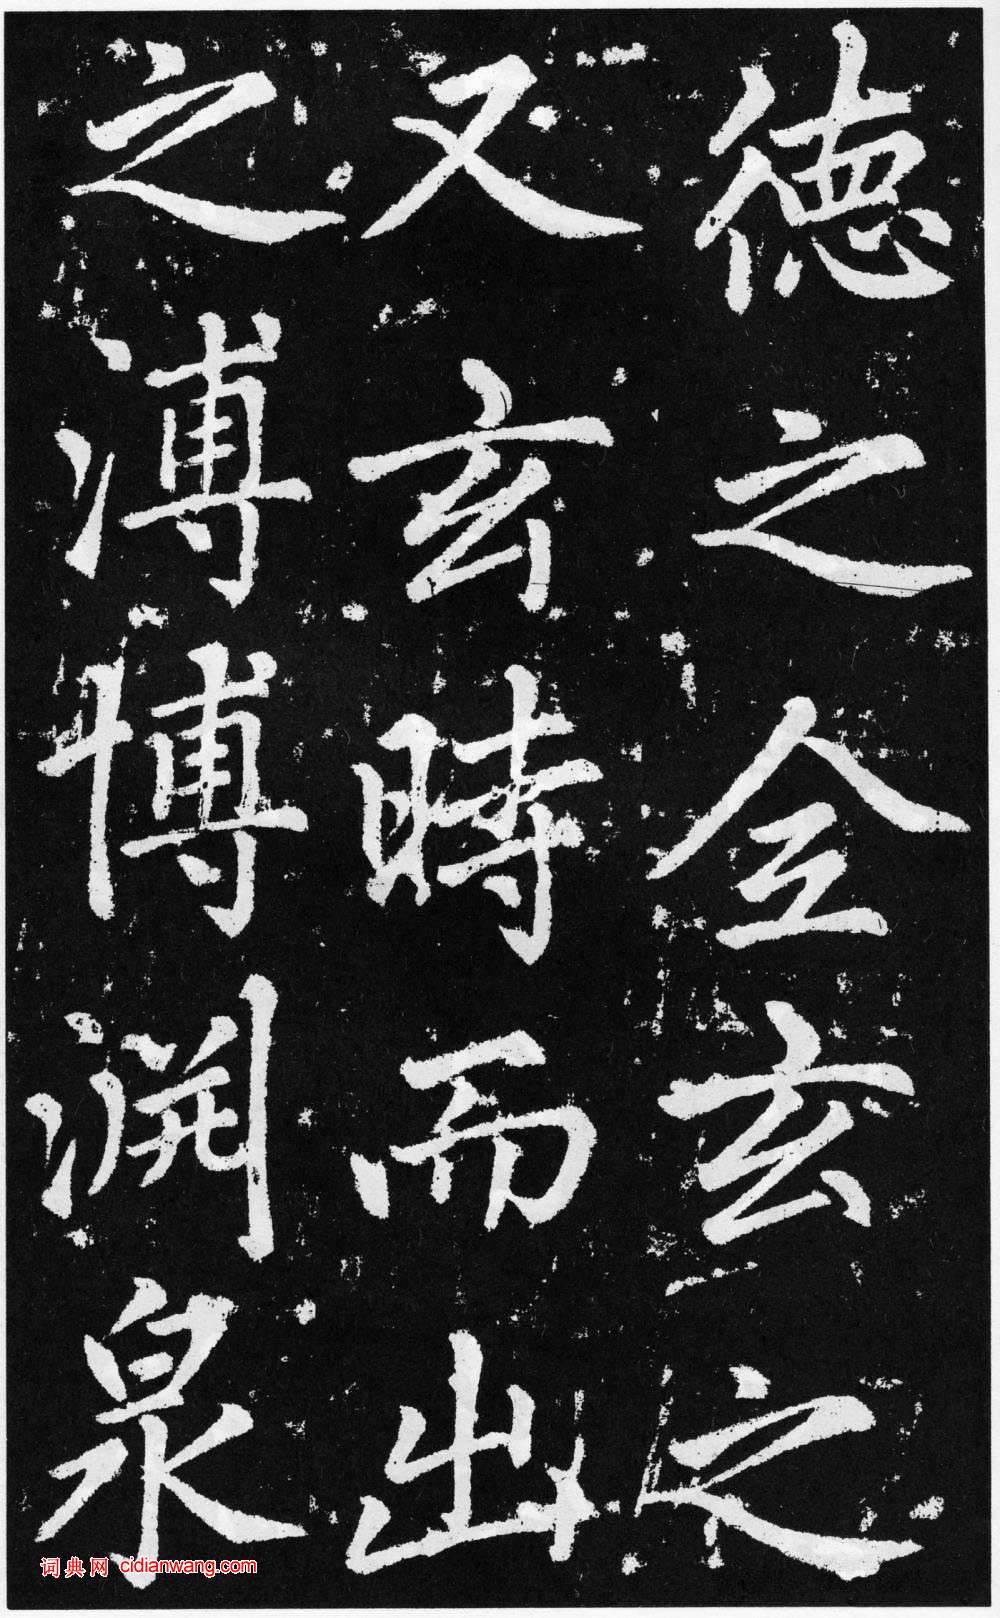 德之全玄之
又玄時而出
之溥博渊泉
词典网 cidianwang.com